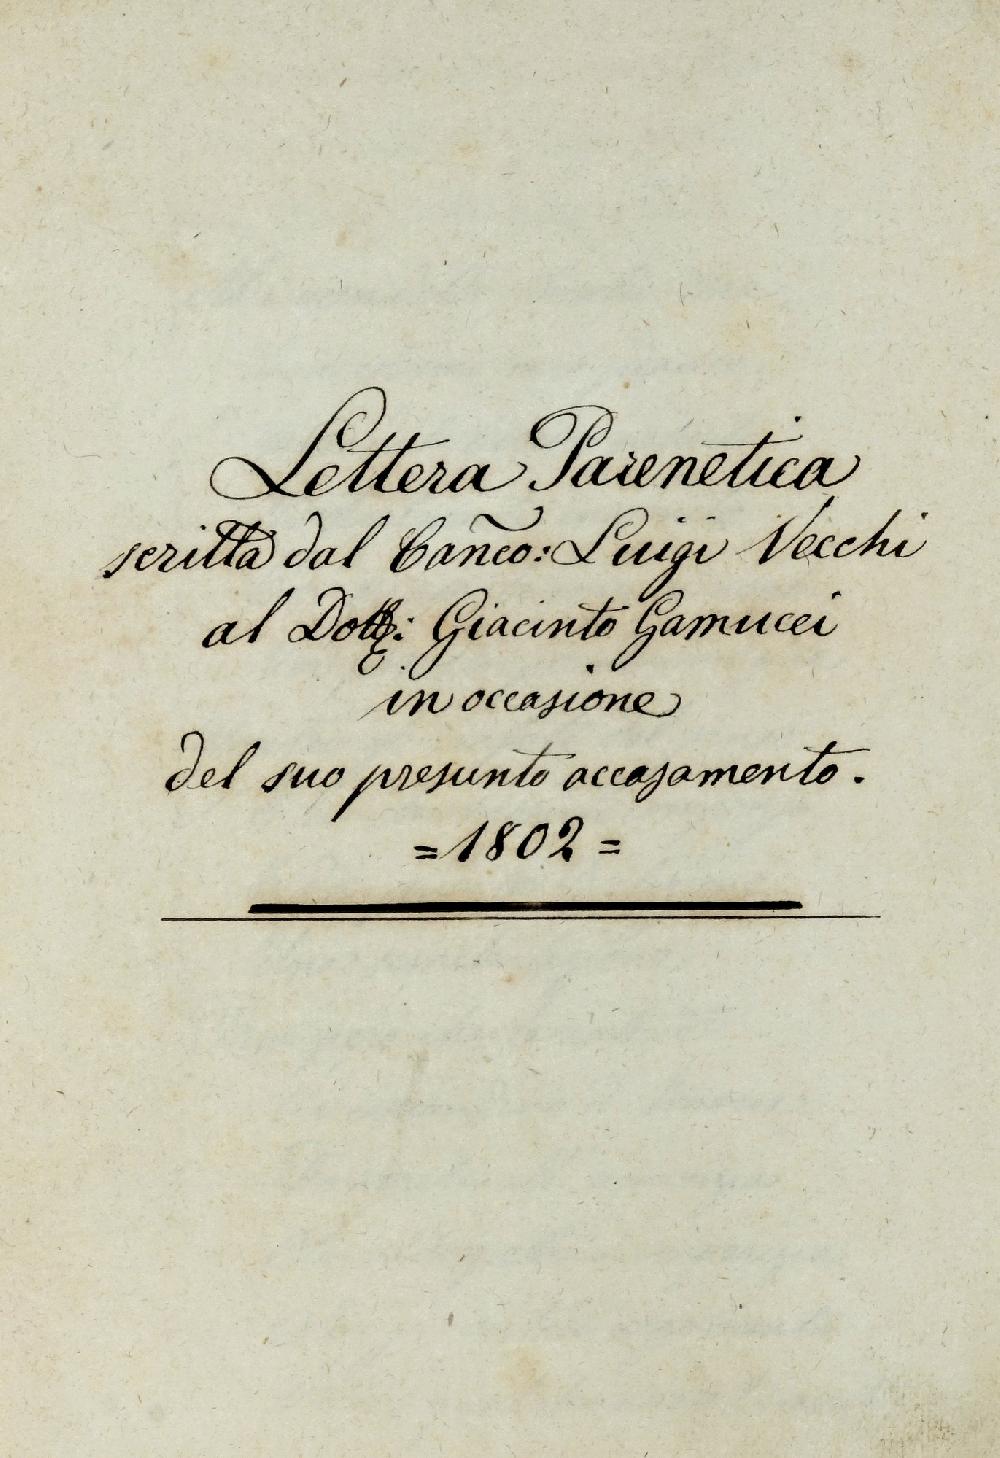 Lettera Parenetica
scritta dal Cañco: Luigi Vecchi
al Dott: Giacinto Gamucci
in occasione
del suo presunto accasamento.
=1802=